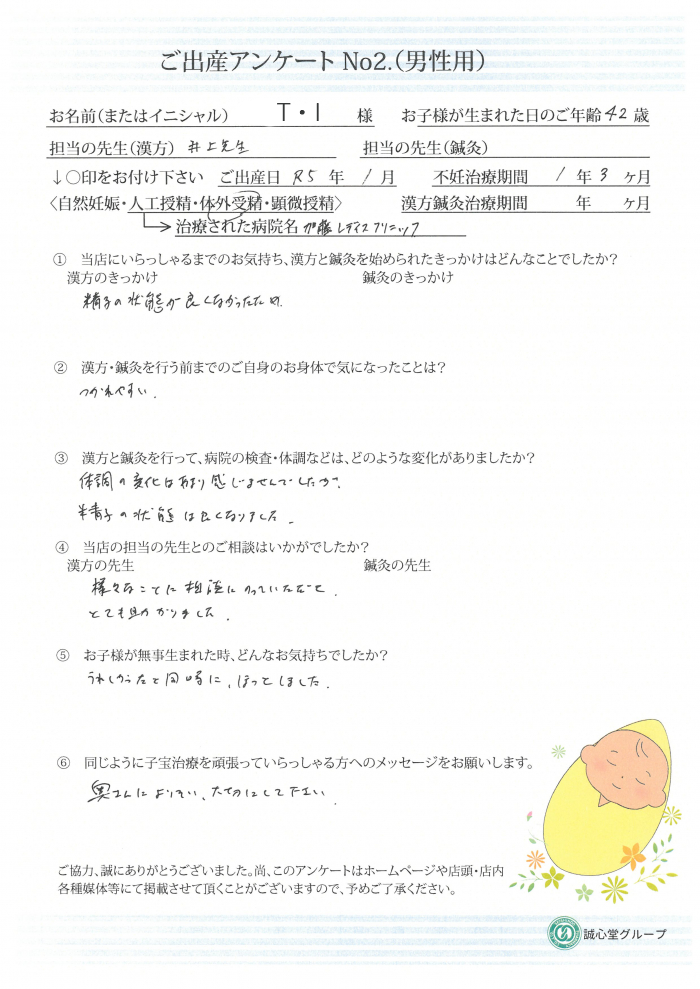 ご出産アンケート No2.(男性用)
お名前(またはイニシャル) T・I 様 お子様が生まれた日のご年齢 42 歳
担当の先生(漢方) 井上先生 担当の先生(鍼灸)
↓〇印をお付け下さい ご出産日 R5 年 1 月 不妊治療期間 1 年 3 ヶ月
〈自然妊娠・人工授精・体外受精・顕微授精〉 漢方鍼灸治療期間 年 ヶ月
治療された病院名 加藤レディスクリニック
① 当店にいらっしゃるまでのお気持ち、漢方と鍼灸を始められたきっかけはどんなことでしたか?
漢方のきっかけ 鍼灸のきっかけ
精子の状態が良くなかったため.
② 漢方・鍼灸を行う前までのご自身のお身体で気になったことは?
つかれやすい.
③ 漢方と鍼灸を行って、病院の検査・体調などは、どのような変化がありましたか?
体調の変化はあまり感じませんでしたが、
精子の状態は良くなりました.
④ 当店の担当の先生とのご相談はいかがでしたか?
漢方の先生 鍼灸の先生
様々なことに相談にのっていただき、
とても助かりました.
⑤ お子様が無事生まれた時、どんなお気持ちでしたか?
うれしかったと同時に、ほっとしました.
⑥ 同じように子宝治療を頑張っていらっしゃる方へのメッセージをお願いします。
奥さんによりそい、大切にして下さい.
ご協力、誠にありがとうございました。尚、このアンケートはホームページや店頭・店内
各種媒体等にて掲載させて頂くことがございますので、予めご了承ください。
誠心堂グループ